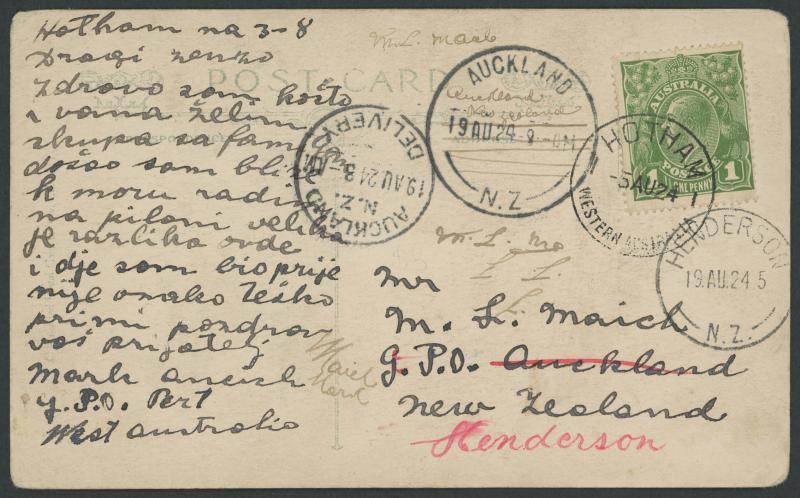 Hotham na 3-8
Dragi Zenko
Zdravo sam košto
i vama želim
skupa sa fam
došao sam bliže
k moru radim
na pilani velika
je razlika ovde
i dje sam bio prije
nije onako teško
primi pozdrav
vaš prijatelj
Mark
G.P.O. Pert
West Australio
POST CARD
M.L. Maich
AUCKLAND
Auckland
New Zealand
19 AU.24 8 - AM
N.Z.
AUCKLAND
N.Z.
19.AU.24 8
DELIVERY
AUSTRALIA
POSTAGE
1 1
ONE PENNY
HOTHAM
-5 AU 24
WESTERN AUSTRALIA
HENDERSON
19.AU.24 5
N.Z.
M. L.
Mr
M. L. Maich
G.P.O. Auckland
New Zealand
Henderson
Maich